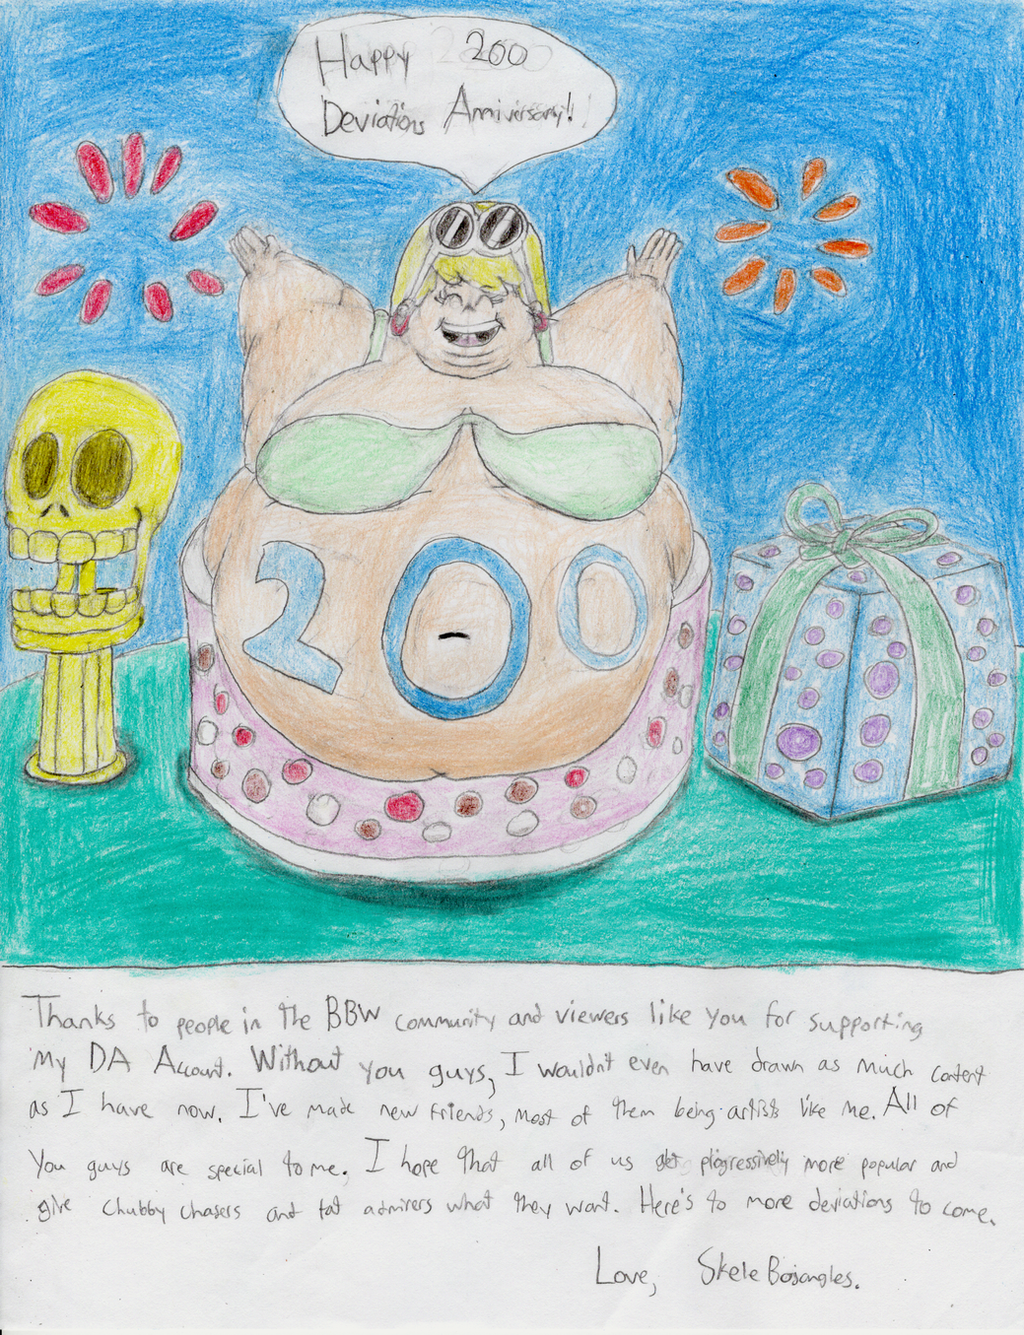 Happy 200
Deviations Anniversary!
200
Thanks to people in the BBW community and viewers like you for supporting
my DA Account. Without you guys, I wouldn't even have drawn as much content
as I have now. I've made new friends, most of them being artists like me. All of
you guys are special to me. I hope that all of us get progressively more popular and
give chubby chasers and fat admirers what they want. Here's to more deviations to come.
Love, Skele Bojangles.